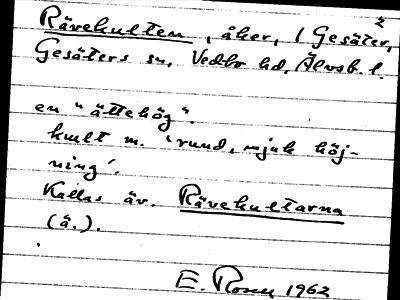 Rävekulten, åker, 1 Gesäter,
Gesäters sn, Vedbo hd, Älvsb. l.
en "ättehög".
kult m. 'rund, mjuk höj-
ning'.
Kallas äv. Rävekultarna
(ä.).
E. Rosm 1962